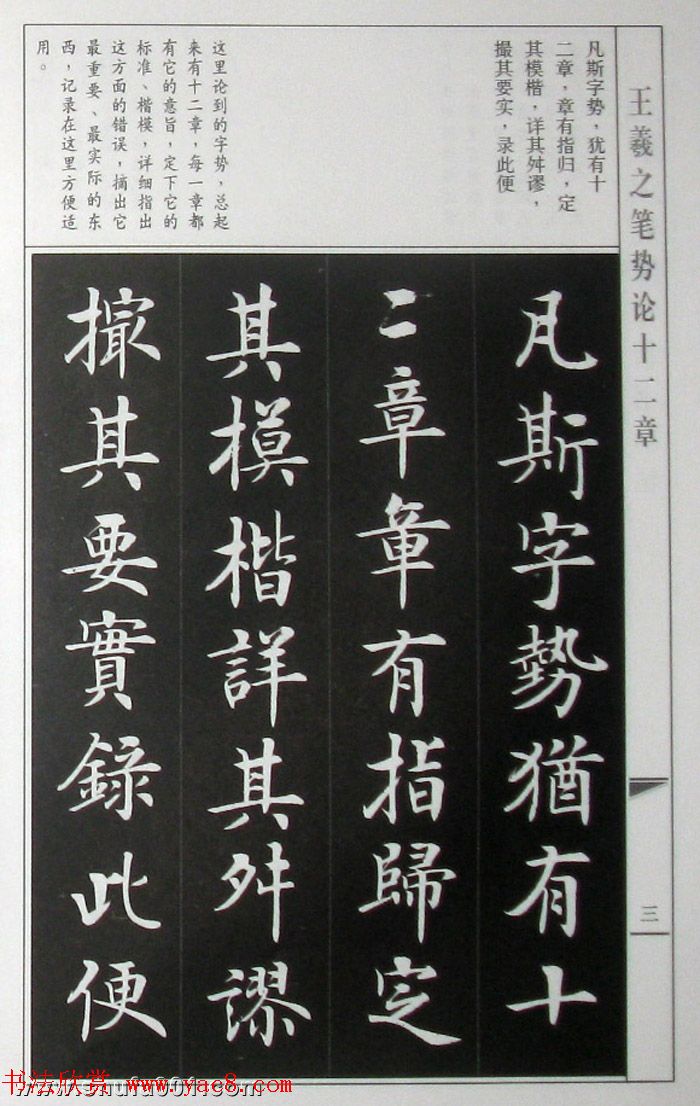 王羲之笔势论十二章
三
凡斯字势，犹有十
二章，章有指归，定
其模楷，详其舛谬，
撮其要实，录此便
这里论到的字势，总起
来有十二章，每一章都
有它的意旨，定下它的
标准、楷模，详细指出
这方面的错误，摘出它
最重要、最实际的东
西，记录在这里方便适
用。
凡斯字勢猶有十
二章章有指歸定
其模楷詳其舛謬
撮其要實錄此便
书法欣赏 www.yac8.com